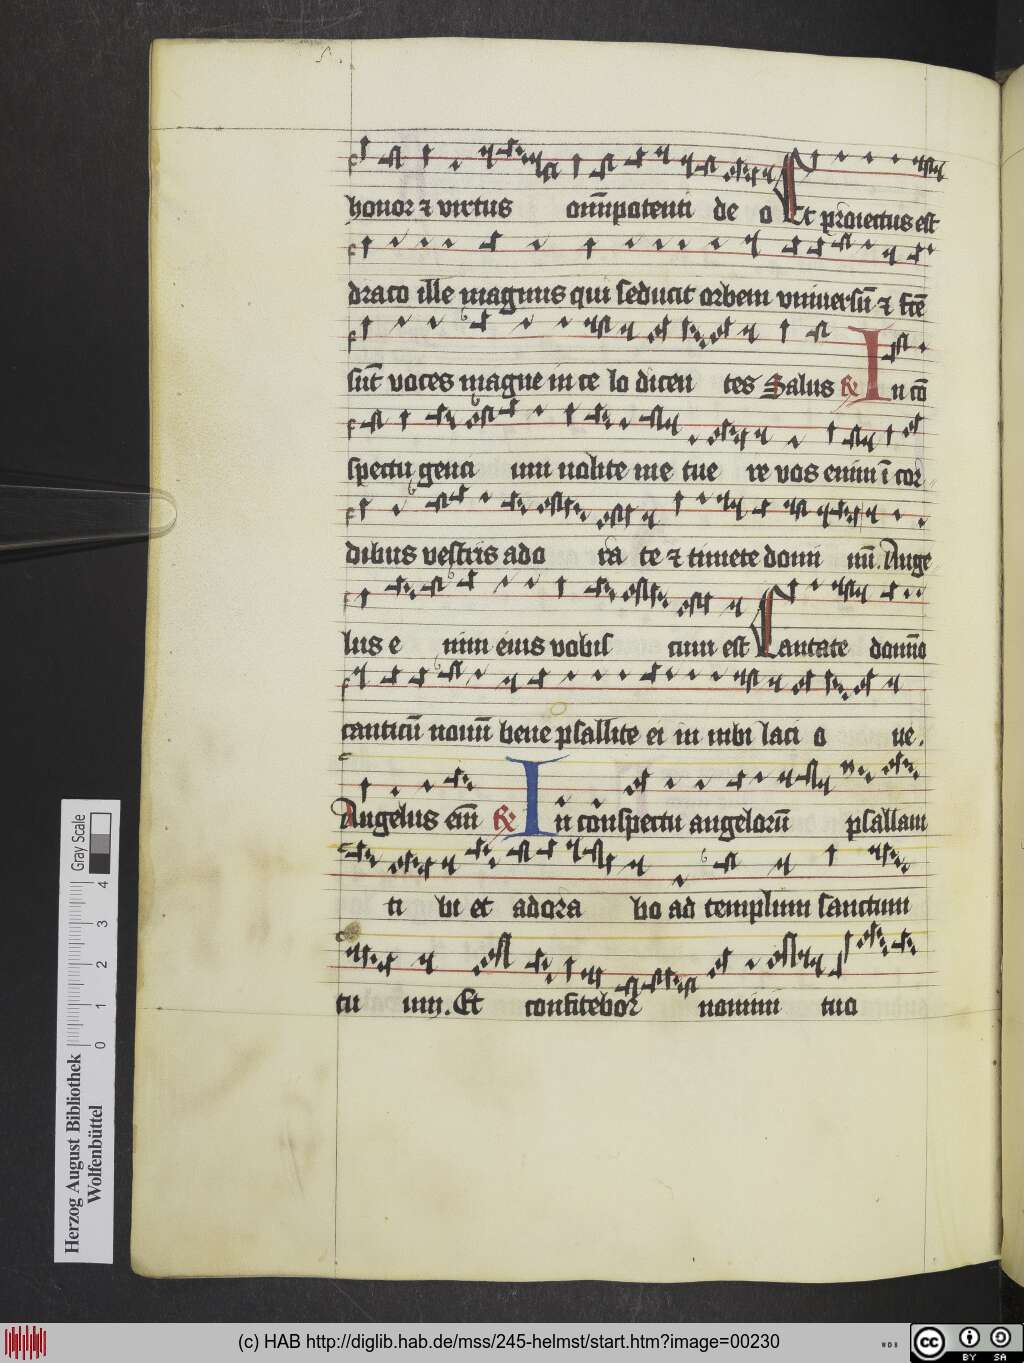 honor ⁊ virtus om̄ipotenti de o Et proiectus est
draco ille magnus qui seducit orbem vniuersū ⁊ fc̄e
sūt voces magne in ce lo dicen tes Salus ℟ In cō
spectu genci um nolite me tue re vos enim ī cor
dibus vestris ado ra te ⁊ timete domi nū. Ange
lus e nim eius vobis cum est Cantate domīo
canticū nouū bene psallite ei in iubi laci o ne.
Angelus em̄ ℟ In conspectu angelorū psallam
ti bi et adora bo ad templum sanctum
tu um. Et confitebor nomini tuo
Herzog August Bibliothek
Wolfenbüttel
0 1 2 3 4
Gray Scale
(c) HAB http://diglib.hab.de/mss/245-helmst/start.htm?image=00230
WDB
cc BY SA